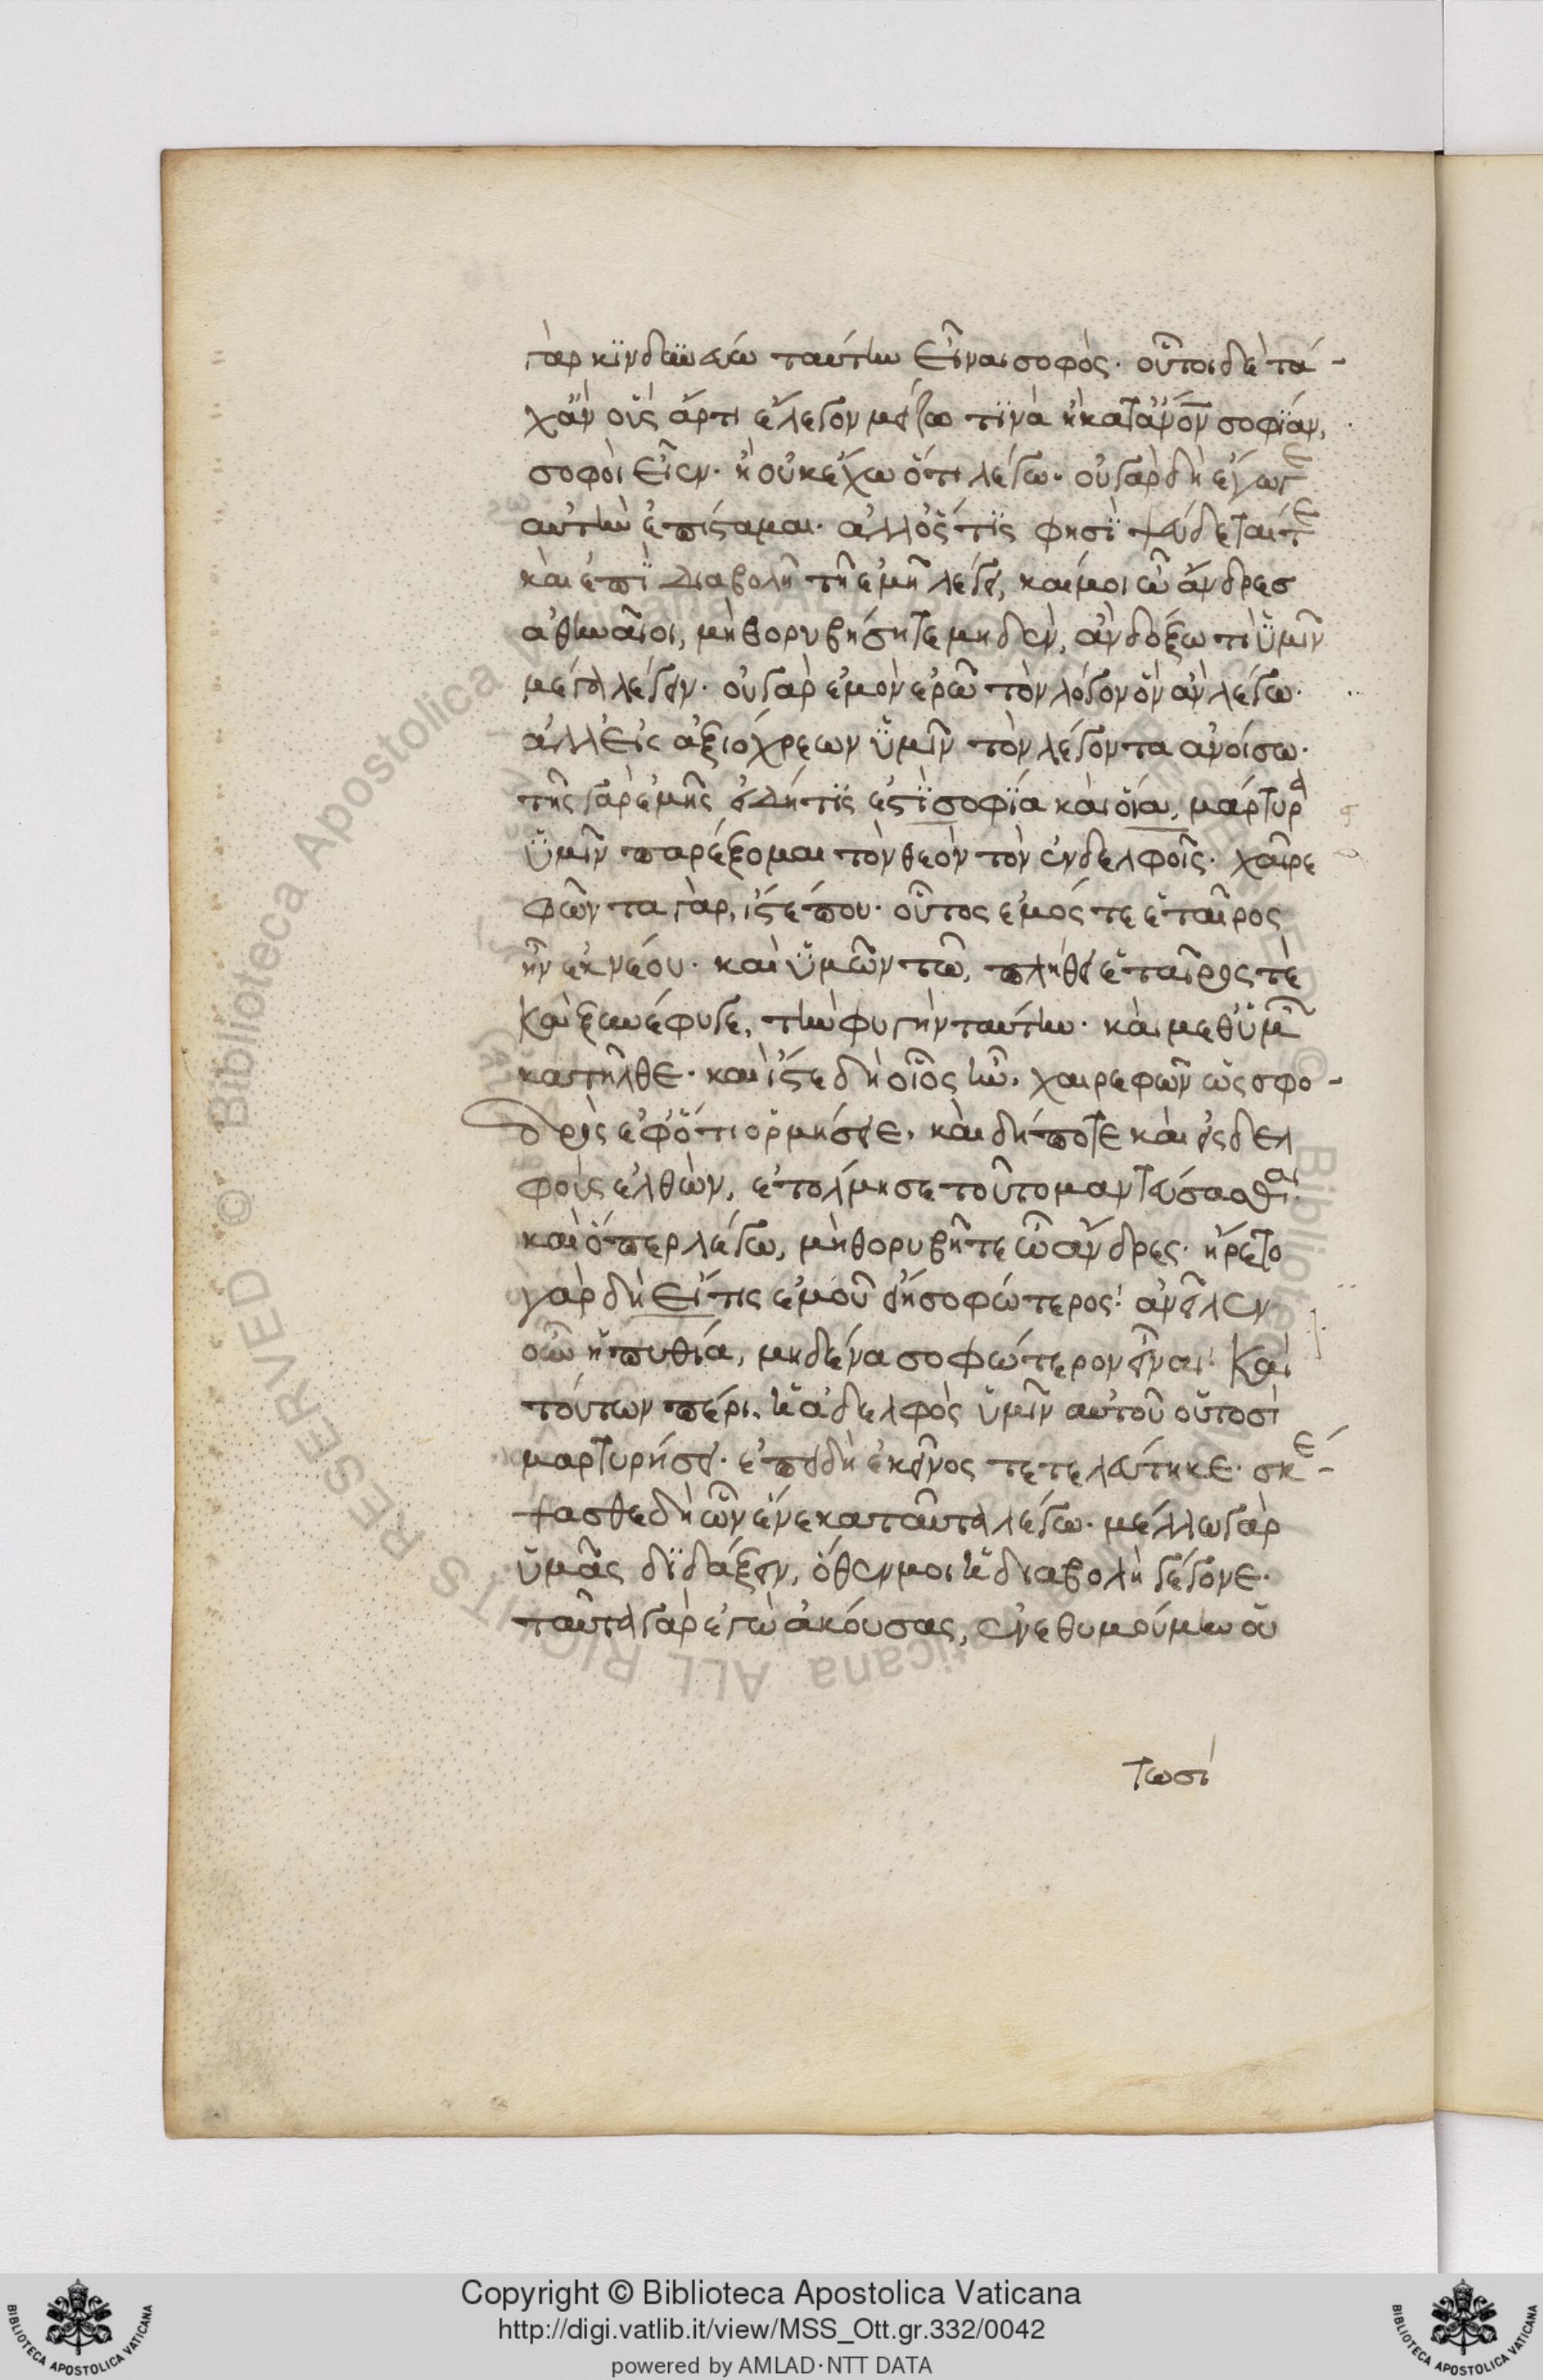 γὰρ κϊνδϋνεύω ταύτην εἶναι σοφὸς· οὗτοι δὲ τά-
χἂν οὓς ἄρτι ἔλεγον μείζω τϊνὰ ἢ κατἄνον σοφΐαν,
σοφοὶ εἶεν· ἢ οὐκ ἔχω ὅτι λέγω· οὐ γὰρ δὴ ἔγωγε
αὐτὴν ἐπίσταμαι· ἀλλ' ὅστϊς φησΐ ψεύδεταίτε
καὶ ἐπϊ διαβολῆ τῆ ἐμῆ λέγει, καί μοι ὦ ἄνδρες
ἀθηναῖοι, μὴ θορυβήσητε μηδὲν, ἂν δόξω τὶ ὑμῖν
μέγα λέγειν· οὐ γὰρ ἐμὸν ἐρῶ τὸν λόγον ὃν ἂν λέγω·
ἀλλ' εἰς ἀξιόχρεων ὑμῖν τὸν λέγοντα ἀνοίσω·
τῆς γὰρ ἐμῆς εἰ δή τϊς ἐστϊ σοφΐα καὶ οἵα, μάρτυρα
ὑμῖν παρέξομαι τὸν θεὸν τὸν ἐν δελφοῖς· χαιρε
φῶντα γὰρ, ἴστέ που· οὗτος ἐμός τε ἑταῖρος
ἦν ἐκ νέου· καὶ ὑμῶν τῶ, πλήθει ἑταῖρος τὲ
καὶ ξυνέφυγε, τὴν φυγὴν ταύτην· καὶ μεθ' ὑμῶν
κατῆλθε· καὶ ἴστε δὴ οἷος ἦν, χαιρεφῶν ὡς σφο-
δρὸς ἐφ' ὅτι ὁρμήσειε, καὶ δή ποτε καὶ εἰς δελ
φοὺς ἐλθὼν, ἐτόλμησε τοῦτο μαντεύσασθαι·
καὶ ὅπερ λέγω, μὴ θορυβῆτε ὦ ἄνδρες· ἤρετο
γὰρ δὴ εἴ τις ἐμοῦ εἴη σοφώτερος· ἀνεῖλεν
οὖν ἡ πυθία, μηδένα σοφώτερον εἶναι· Καὶ
τούτων πέρι, ὁ ἀδελφὸς ὑμῖν αὐτοῦ οὑτοσὶ
μαρτυρήσει· ἐπειδὴ ἐκεῖνος τετελεύτηκε· σκέ-
ψασθε δὴ ὧν ἕνεκα ταῦτα λέγω· μέλλω γὰρ
ὑμᾶς δϊδάξειν, ὅθεν μοι ἡ διαβολὴ γέγονε·
ταῦτα γὰρ ἐγὼ ἀκούσας, ἐνεθυμούμην οὑ
τωσὶ
Copyright © Biblioteca Apostolica Vaticana
http://digi.vatlib.it/view/MSS_Ott.gr.332/0042
powered by AMLAD·NTT DATA